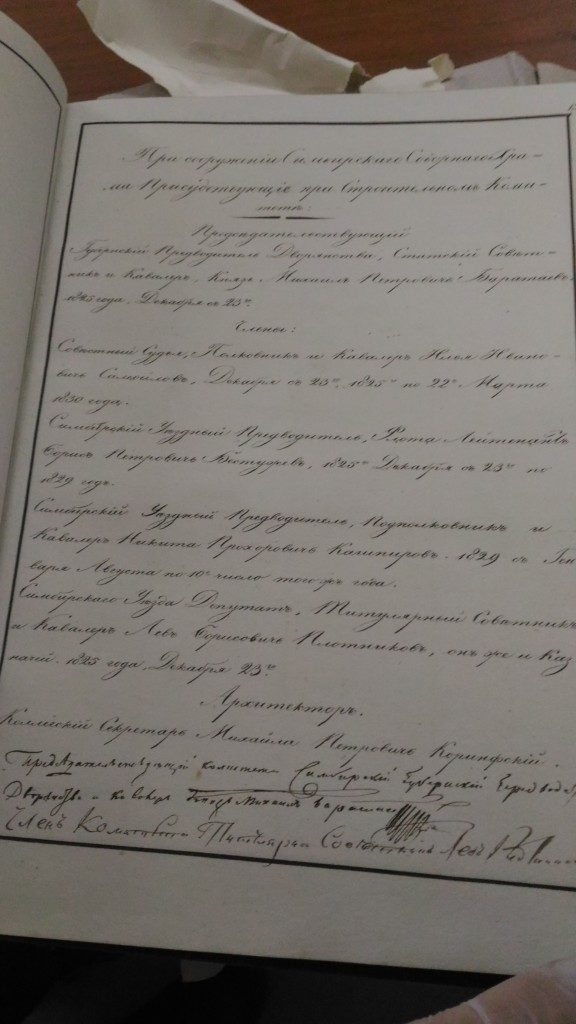 При сооруженіи Симбирскаго Соборнаго Хра-
ма Присудствующіе при Строительномъ Коми-
тетѣ:
Председательствующій
Губернскій Предводитель Дворянства, Статскій Совѣт-
никъ и Кавалеръ, Князь Михаилъ Петровичь Баратаевъ
1825 года, Декабря съ 23го.
Члены:
Совѣстный Судья, Полковникъ и Кавалеръ Илья Ивано-
вичь Самойловъ, Декабря съ 23го, 1825го по 22е Марта
1830 года.
Симбирскій Уѣздный Предводитель, Флота Лейтенантъ
Борисъ Петровичь Бестужевъ, 1825го Декабря съ 23го по
1829 годъ.
Симбирскій Уѣздный Предводитель, Подполковникъ и
Кавалеръ Никита Прохоровичь Кашпировъ. 1829 съ Ген
варя Августа по 10е число того жъ года.
Симбирскаго Уѣзда Депутатъ, Титулярный Совѣтникъ
и Кавалеръ Левъ Борисовичь Плотниковъ, онъ же и Каз
начей. 1825 года, Декабря 23го.
Архитекторъ.
Коллежскій Секретарь Михайла Петровичь Коринфскій.
Председательствующій комитета Симбирскій Губернскій
Дворянства и кавалеръ Князь Михаилъ Баратаевъ
Членъ Комитета Левъ